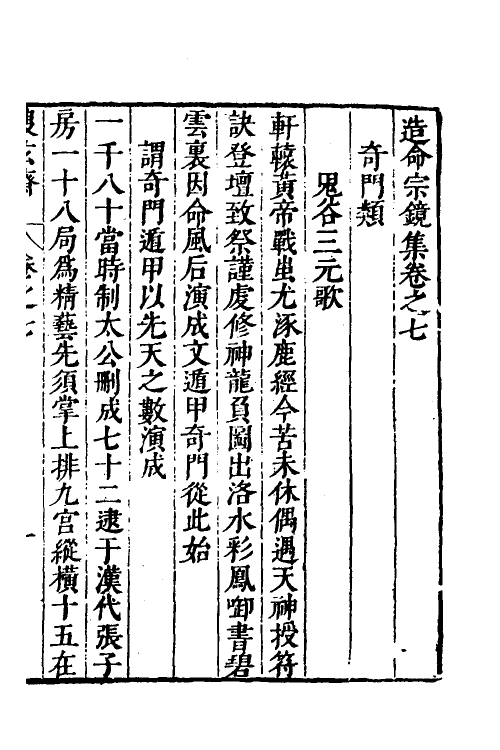 造命宗鏡集卷之七
奇門類
鬼谷三元歌
軒轅黃帝戰蚩尤涿鹿經今苦未休偶遇天神授符
訣登壇致祭謹虔修神龍負圖出洛水彩鳳啣書碧
雲裏因命風后演成文遁甲奇門從此始
謂奇門遁甲以先天之數演成
一千八十當時制太公刪成七十二逮于漢代張子
房一十八局爲精藝先須掌上排九宮縱橫十五在
卷之七
一